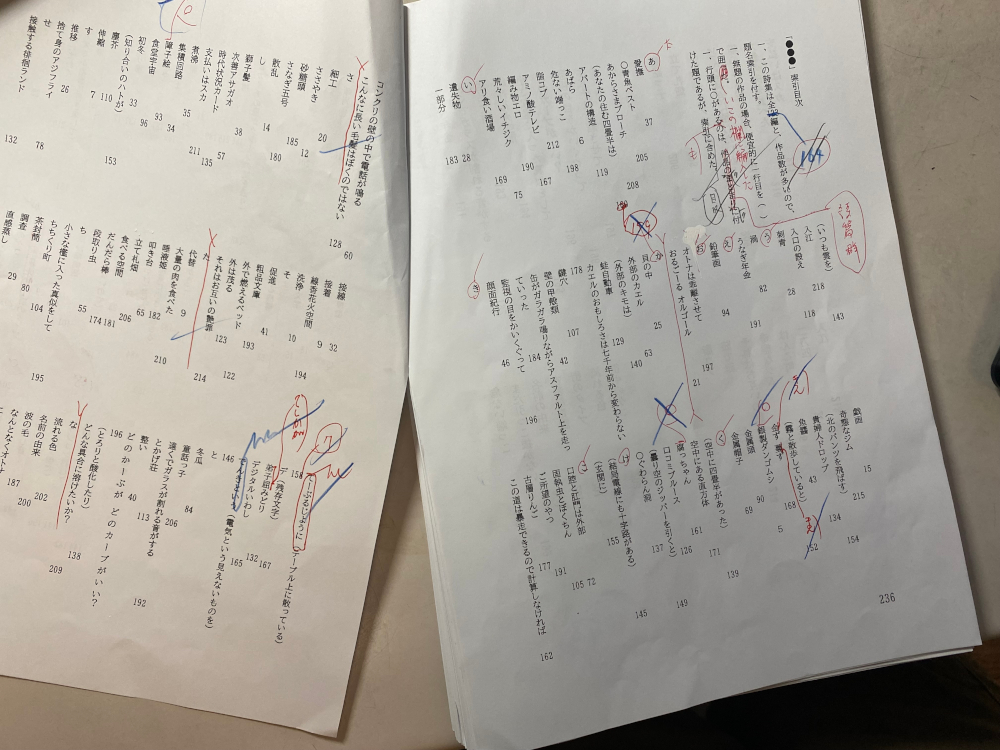 「●●●」索引目次
一、この詩集は全 編と、作品数が多いので、
題名索引を付す。
一、無題の作品の場合、便宜的に一行目を（ ）
で囲
一、行頭に○があるのは、
けた題であるが、索引に含めた。
164
も
目感
あ
愛撫 37
○青魚ベスト 205
あからさまアローチ 208
（あなたの住む四畳半は）
アパートの構造 119
あばら 6
危ない端っこ 198
脂コブ 212
アミノ酸テレビ 167
編み物エロ 190
荒々しいイチジク 75
アリ食い酒場 169
い
遺失物 28
一部分 183
（いつも雲を） 143
入江 218
入口の設え 118
う
刺青 28
渦 82
うなぎ年会 191
え
鉛筆画 94
お
オトナは乖離させて 197
おるごーる オルゴール 21
か
貝の中 25
外部のカエル 63
（外部のキモは） 140
蛙自動車 129
カエルのおもしろさは七千年前から変わらない
178
鍵穴 107
壁の甲殻類 42
缶がガラガラ鳴りながらアスファルト上を走っ
ていった 196
監視の目をかいくぐって 184
顔面紀行 46
き
戯画 15
奇怪なジム 215
（北のパンツを飛ばす） 154
貴婦人ドロップ 134
魚醬 43
（霧と散歩していると） 152
168
銀製ダンゴムシ 5
金属頭 69
金属帽子 90
く
（空中に四畳半があった） 139
空中にある直方体 171
腐っちゃん 161
口コミブルース 126
（曇り空のジッパーを引くと） 149
○ぐわらん訳 137
け
（結局電線にも十字路がある） 145
（玄関に） 155
こ
口腔と肛門は外部 72
固執虫とぼくちん 105
ご所望のやつ 191
古層りんご 177
この道は暴走できるので計算しなければ 162
236
コンクリの壁の中で電話が鳴る 60
こんなに長い毛髪はぼくのではない 128
さ
細工 20
ささやき 12
砂糖頭 185
さなぎ五号 180
散乱 14
し
獅子髪
次善アサガオ 38
時代状況カード 57
支払いはスカ 211
煮沸 135
集積回路 35
障子絵 93
食堂宇宙 34
初冬 96
（知り合いのハトが） 33
塵芥 110
伸縮 7
す
推移 153
捨て身のアジフライ 26
せ
接触する徘徊ランド 132
78
接線 32
接着 9
線香花火空間 194
洗浄 10
そ
促進 41
粗品文庫 193
外で燃えるベッド
外は茂る 122
それはお互いの艶罪 123
た 214
代替 9
大量の肉を食べた 210
唾液姫 182
叩き台 65
立て札畑 206
食べる空間 181
だんだら棒 174
段取り虫 55
ち
小さな檻に入った真似をして 195
ちちくり町 104
茶封筒 80
調査 29
直感蒸し
て
でぃふるじょうに
（テーブル上に散っている） 158
デ（残存文字） 167
弟子屈みどり 132
デジタルいわし 165
でんきという（電気という見えないものを）
と 146
冬瓜 84
童話っ子
遠くでガラスが割れる音がする 206
とかげ荘 113
整い 40
どのかーぶが どのカーブがいい？ 192
196
（とろりと酸化したり） 138
どんな具合に溶けたいか？ 209
な
流れる色 202
名前の由来 200
波の毛 187
なんとなくオトナ